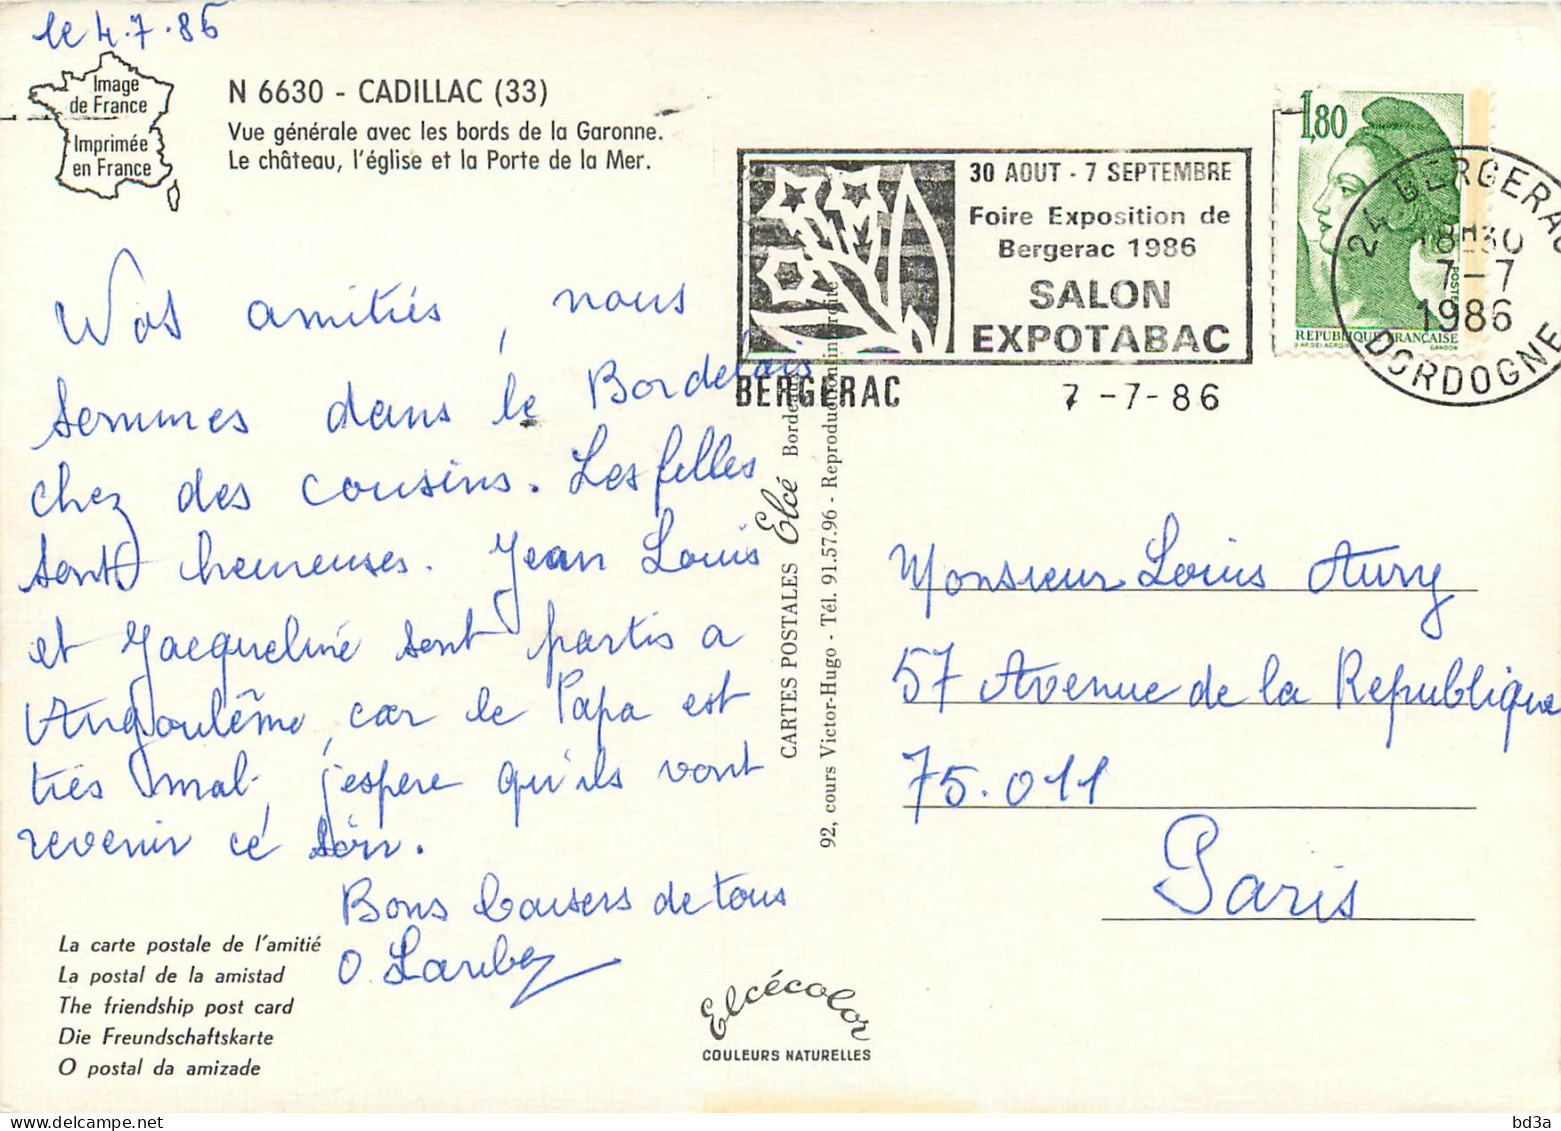 le 4.7.86
Image
de France
Imprimée
en France
N 6630 - CADILLAC (33)
Vue générale avec les bords de la Garonne.
Le château, l'église et la Porte de la Mer.
Vos amitiés, nous
sommes dans le Bordelais
chez des cousins. Les filles
sont heureuses. Jean Louis
et Jacqueline sont partis a
Angoulême, car le Papa est
très mal, j'espere qu'ils vont
revenir ce soir.
Bons baisers de tous
O.
La carte postale de l'amitié
La postal de la amistad
The friendship post card
Die Freundschaftskarte
O postal da amizade
CARTES POSTALES Elcé Bordeaux
92, cours Victor-Hugo - Tél. 91.57.96 - Reproduction interdite
Elcécolor
COULEURS NATURELLES
30 AOUT - 7 SEPTEMBRE
Foire Exposition de
Bergerac 1986
SALON
EXPOTABAC
BERGERAC 7-7-86
1,80
REPUBLIQUE FRANÇAISE
POSTES
GANDON
24 BERGERAC
18H30
7-7
1986
DORDOGNE
Monsieur Louis Aury
57 Avenue de la Republique
75.011
Paris
bd3a